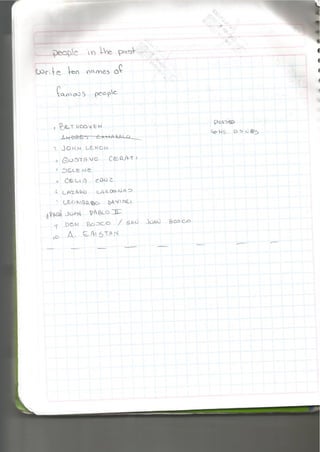 people in the past
write ten names of
famous people
1 BETHOOVEN
2 JOHN LENON
3 GUSTAVO CERATI
5 CELIA CRUZ
6 LAZARO CARDENAS
7 LEONARDO DAVINCI
8 PAPA JUAN PABLO II
9 DON BOSCO / SAN JUAN BOSCO
10 A. EINSTAN